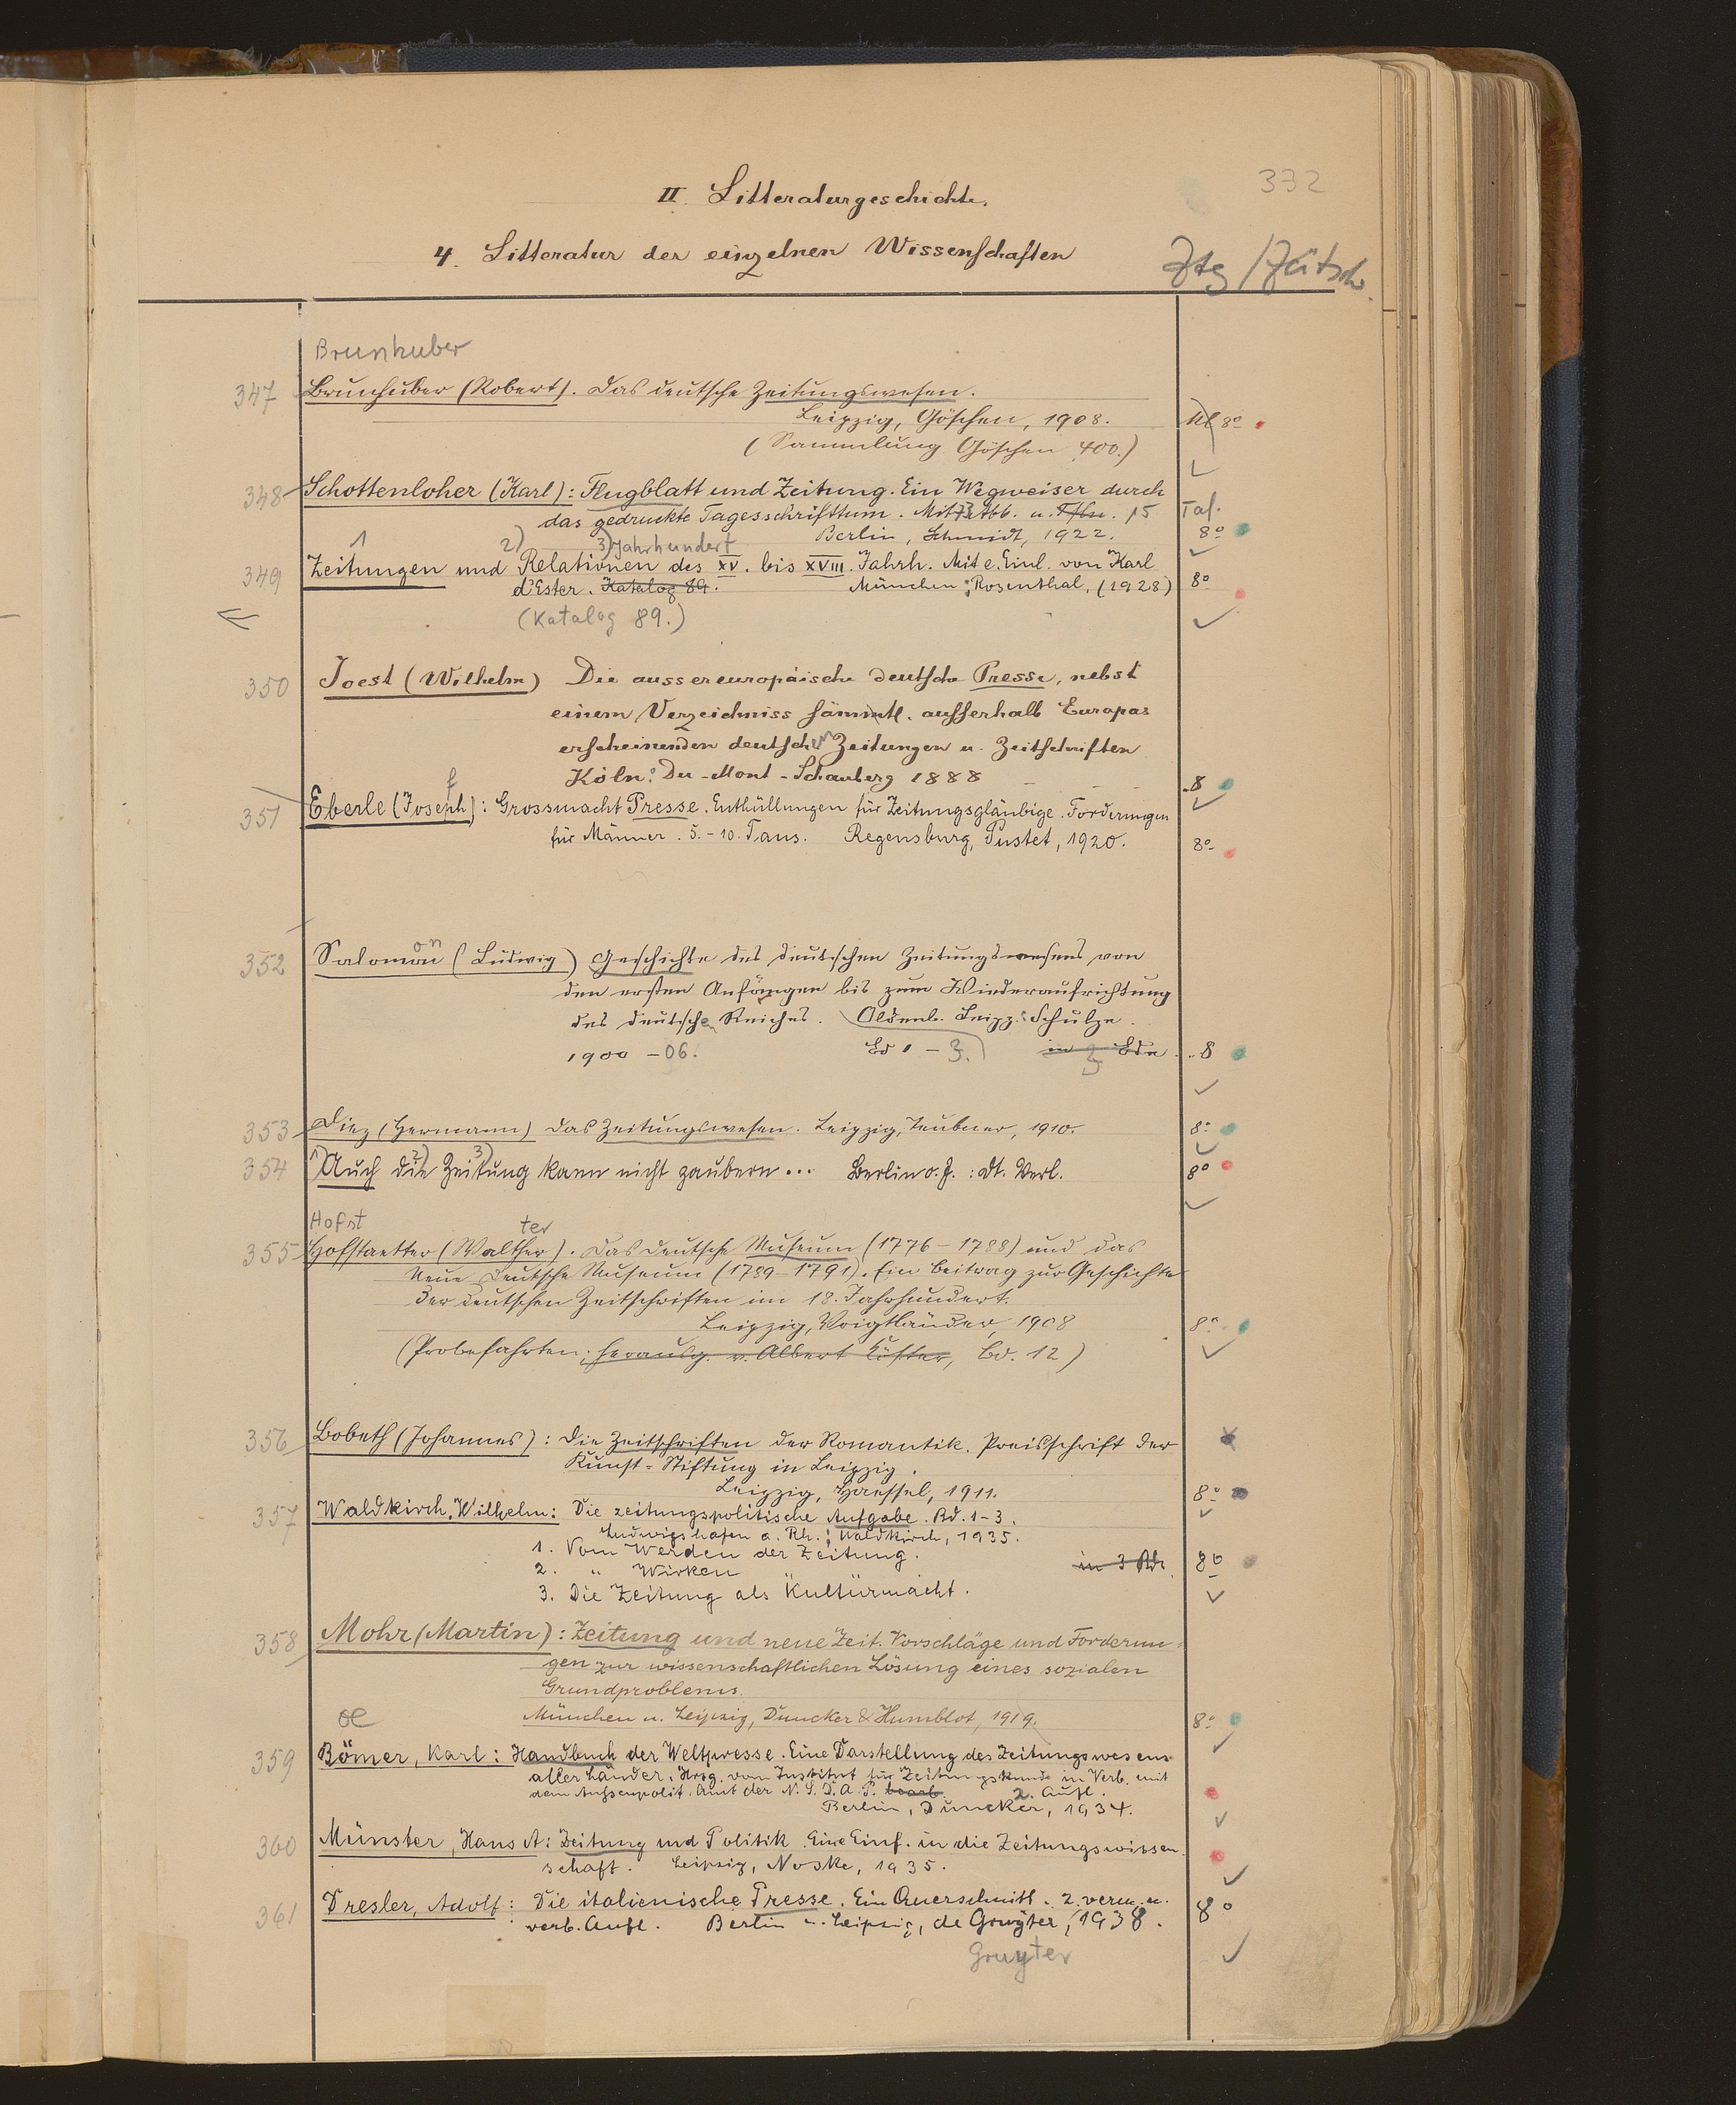 332
II. Litteraturgeschichte.
4. Litteratur der einzelnen Wissenschaften
Ztg / Zeitschr.
Brunhuber
347 Brunhuber (Robert). Das deutsche Zeitungswesen.
Leipzig, Göschen, 1908. Kl 8º
(Sammlung Göschen 400.)
348 Schottenloher (Karl): Flugblatt und Zeitung. Ein Wegweiser durch
das gedruckte Tagesschrifttum. Mit Abb. u. Tfln. 15 Taf.
Berlin, Schmidt, 1922. 8º
1 2) 3) Jahrhundert
349 Zeitungen und Relationen des XV. bis XVIII. Jahrh. Mit e. Einl. von Karl
d'Ester. Katalog 89. München: Rosenthal, (1928) 8º
(Katalog 89.)
350 Joest (Wilhelm) Die aussereuropäische deutsche Presse, nebst
einem Verzeichniss sämmtl. ausserhalb Europas
erscheinenden deutschen Zeitungen u. Zeitschriften
Köln: Du-Mont-Schauberg 1888 8
f
351 Eberle (Joseph): Grossmacht Presse. Enthüllungen für Zeitungsgläubige. Forderungen
für Männer. 5.-10. Taus. Regensburg, Pustet, 1920. 8º
on
352 Salomon (Ludwig) Geschichte des deutschen Zeitungswesens von
den ersten Anfängen bis zum Wiederaufrichtung
des deutschen Reiches. Oldenb. Leipz.: Schulze.
1900 - 06. Bd 1 - 3. in 3 Bdn. 8
353 Diez (Hermann) Das Zeitungswesen. Leipzig, Teubner, 1910. 8º
1) 2) 3)
354 Auch die Zeitung kann nicht zaubern... Berlin o. J. : Dt. Verl. 8º
Hofst ter
355 Hofstaetter (Walther). Das deutsche Museum (1776-1788) und das
Neue deutsche Museum (1789-1791). Ein Beitrag zur Geschichte
der deutschen Zeitschriften im 18. Jahrhundert.
Leipzig, Voigtländer, 1908 8º
(Probefahrten; herausg. v. Albert Köster, Bd. 12)
356 Bobeth (Johannes): Die Zeitschriften der Romantik. Preisschrift der
Kunst-Stiftung in Leipzig.
Leipzig, Haessel, 1911. 8º
357 Waldkirch, Wilhelm: Die zeitungspolitische Aufgabe. Bd. 1-3.
Ludwigshafen a. Rh.: Waldkirch, 1935.
1. Vom Werden der Zeitung.
2. " Wirken in 3 Bdn. 8º
3. Die Zeitung als Kulturmacht.
358 Mohr (Martin): Zeitung und neue Zeit. Vorschläge und Forderun-
gen zur wissenschaftlichen Lösung eines sozialen
Grundproblems.
München u. Leipzig, Duncker & Humblot, 1919. 8º
oe
359 Bömer, Karl: Handbuch der Weltpresse. Eine Darstellung des Zeitungswesens
aller Länder. Hrsg. vom Institut für Zeitungskunde in Verb. mit
dem Aussenpolit. Amt der N.S.D.A.P. bearb. 2. Aufl.
Berlin, Duncker, 1934.
360 Münster, Hans A: Zeitung und Politik. Eine Einf. in die Zeitungswissen-
schaft. Leipzig, Noske, 1935.
361 Dresler, Adolf: Die italienische Presse. Ein Querschnitt. 2. verm. u.
verb. Aufl. Berlin u. Leipzig, de Gruyter, 1938. 8º
Gruyter